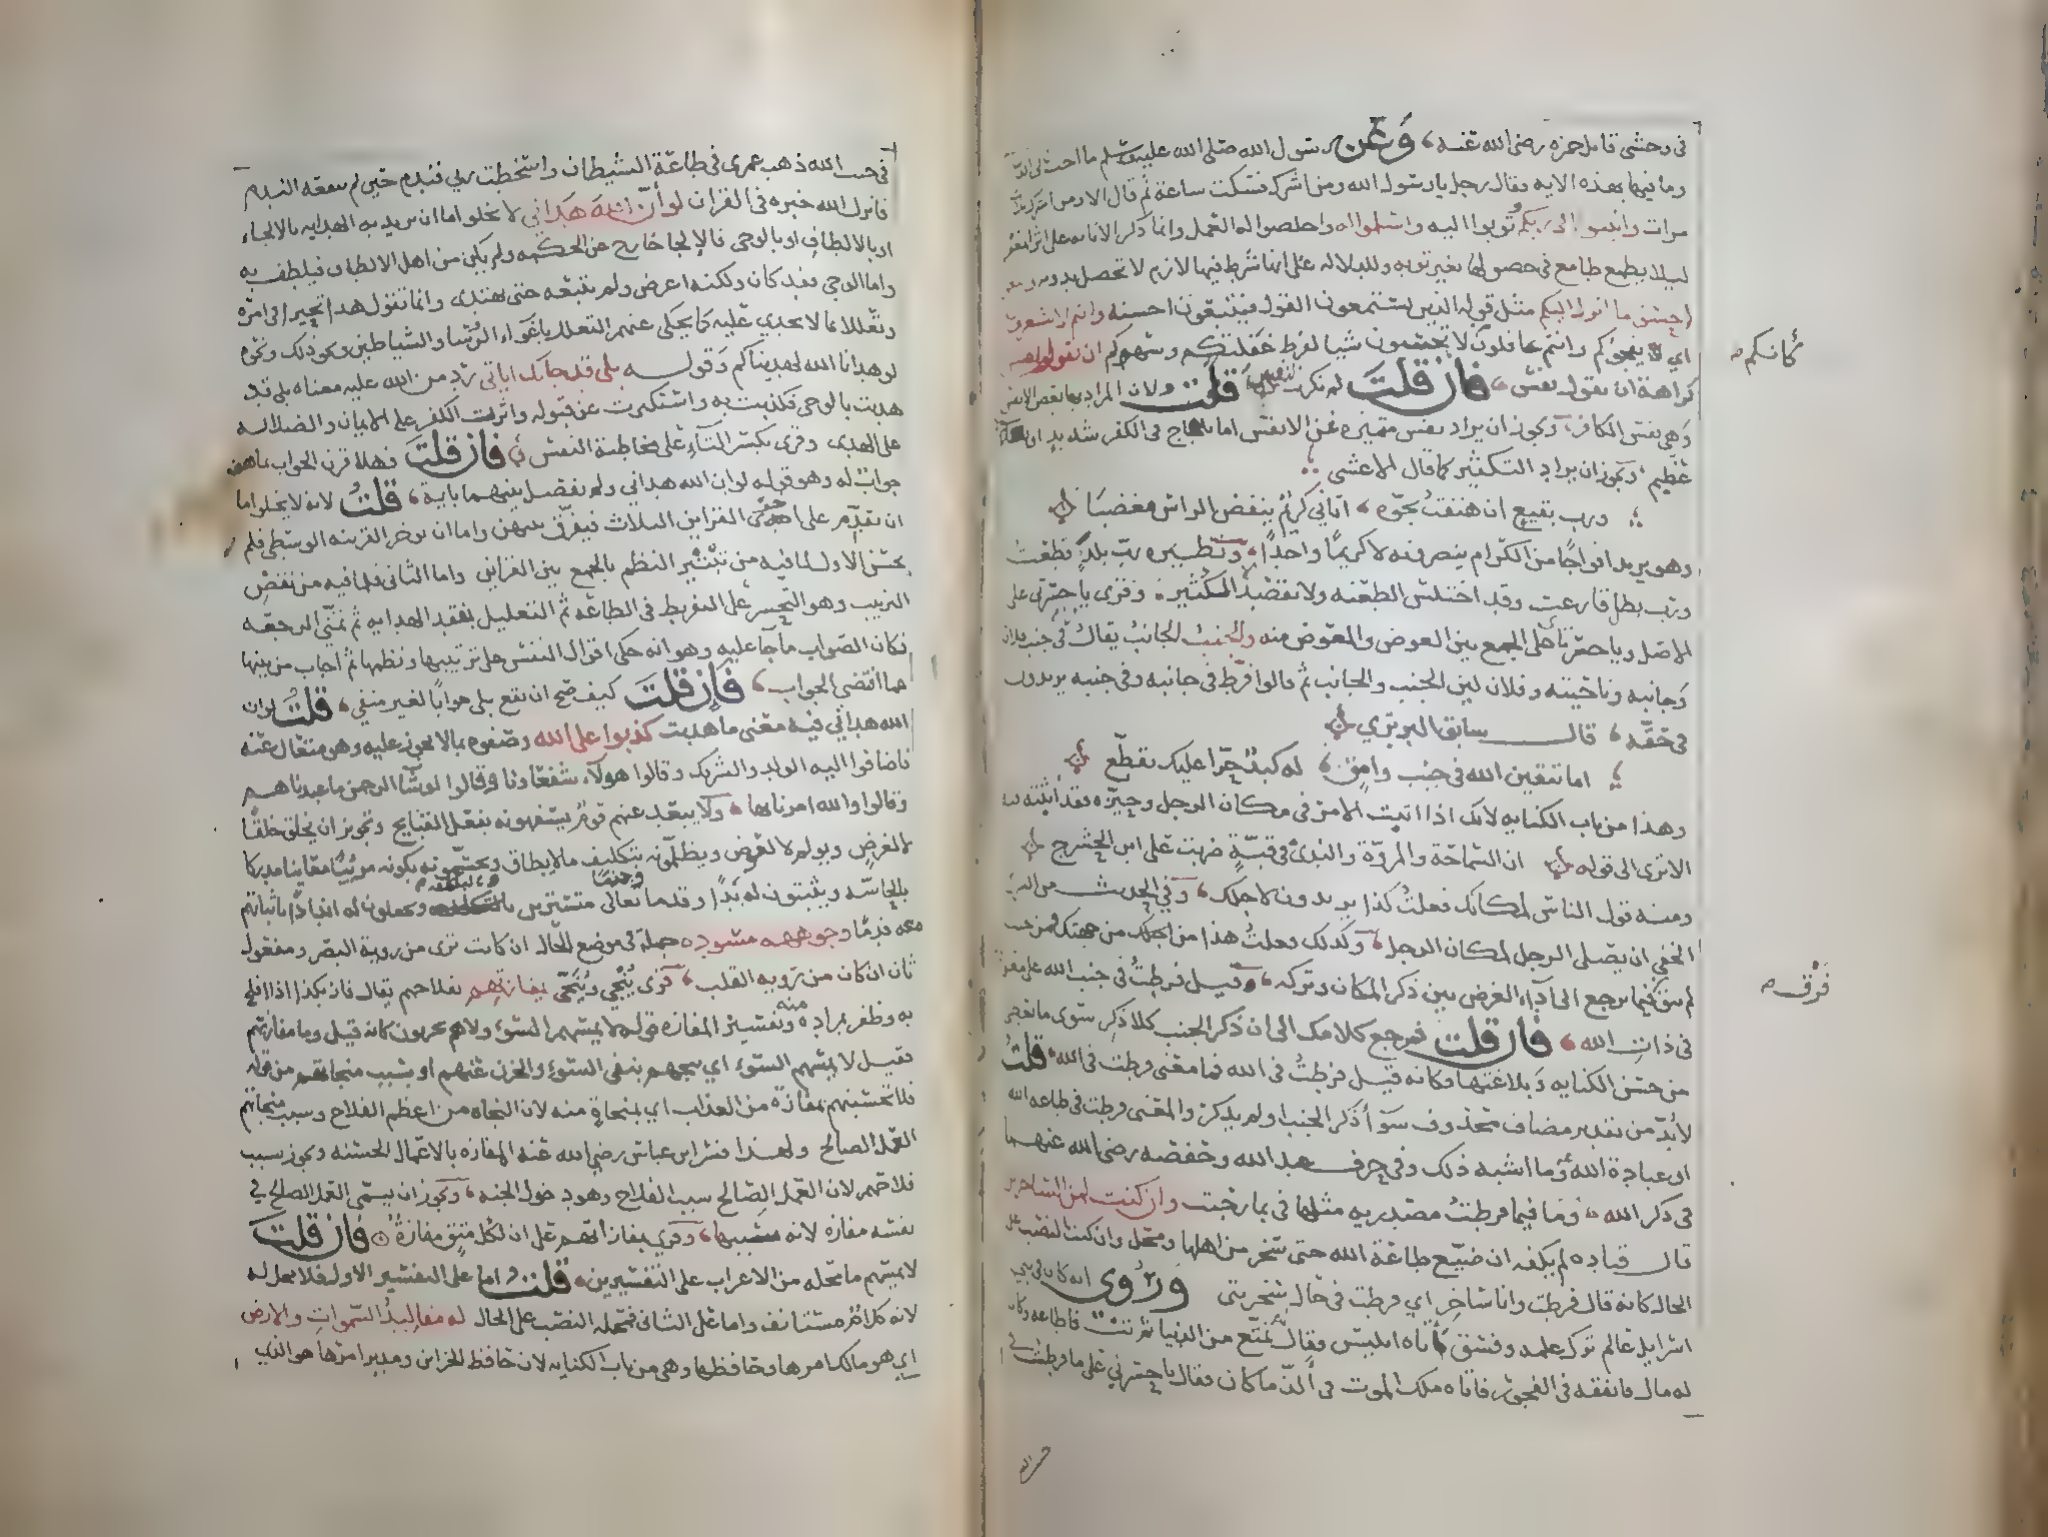 في وحشي قاتل حمزه رضي الله عنه وعن رسول الله صلى الله عليه وسلم ما احب ان لي الدنيا
وما فيها بهذه الايه فقال رجل يا رسول الله ومن اشرك فسكت ساعة ثم قال الا ومن اشرك ثلث
مرات وانيبوا الى ربكم وتوبوا اليه واسلموا له واخلصوا له العمل وانما ذكر الانابه على اثر المغفره
ليلا يطمع طامع في حصولها بغير توبه وللدلاله على انها شرط فيها لازم لا تحصل بدونه
احسن ما انزل اليكم مثل قوله الذين يستمعون القول فيتبعون احسنه وانتم لا تشعرون
اي يفجؤكم وانتم غافلون لا تخشون شيا لفرط غفلتكم وسهوكم ان تقول نفس
كانكم
كراهة ان تقول نفس فان قلت لم نكرت نفس قلت لان المراد بها بعض الانفس
وهي نفس الكافر ويجوز ان يراد نفس متميزه عن الانفس اما بلجاج في الكفر شديد او بعذاب
عظيم ويجوز ان يراد التكثير كما قال الاعشى
ورب بقيع ان هتفت بجوه اتاني كريم ينفض الراس مغضبا
وهو يريد افواجا من الكرام ينصرونه لا كريما واحدا ونظيره رب بلد قطعت
ورب بطل قارعت وقد اختلس الطعنه ولا تقصد الا التكثير وقري يا حسرتي على
الاصل ويا حسرتاي على الجمع بين العوض والمعوض منه والجنب الجانب يقال في جنب فلان
وجانبه وناحيته وفلان لين الجنب والجانب ثم قالوا فرط في جانبه وفي جنبه يريدون
في حقه قال سابق البربري
اما تتقين الله في جنب وامق له كبد حرا عليك تقطع
وهذا من باب الكنايه لانك اذا اثبت الامر في مكان الرجل وحيزه فقد اثبته فيه
الا ترى الى قوله ان السماحة والمروة والندى في قبة ضربت على ابن الحشرج
ومنه قول الناس لمكانك فعلت كذا يريدون لاجلك وفي الحديث من الشرك
الخفي ان يصلي الرجل لمكان الرجل وكذلك فعلت هذا من اجلك من جهتك فمن حيث
لم يبق فيما يرجع الى اداء الغرض بين ذكر المكان وتركه قيل فرطت في جنب الله على معنى
فرق
في ذات الله فان قلت فمرجع كلامك الى ان ذكر الجنب كلا ذكر سوى ما تعطي
من حسن الكنايه وبلاغتها وكانه قيل فرطت في الله فما معنى فرطت في الله قلت
لا بد من تقدير مضاف محذوف سوآ أذكر الجنب او لم يذكر والمعنى فرطت في طاعة الله
او عبادة الله وما اشبه ذلك وفي حرف عبد الله وحفصه رضي الله عنهما
في ذكر الله وما فيما فرطت مصدريه مثلها في بما رحبت وان كنت لمن الساخرين
قال قتاده لم يكفه ان ضيع طاعة الله حتى سخر من اهلها ومحل وان كنت النصب على
الحال كانه قال فرطت وانا ساخر اي فرطت في حال سخريتي وروي انه كان في بني
اسرايل عالم ترك علمه وفسق اتاه ابليس وقال تمتع من الدنيا ثم تب فاطاعه وكان
له مال فانفقه في الفجور فاتاه ملك الموت في الذ ما كان فقال يا حسرتي على ما فرطت
في جنب الله ذهب عمري في طاعة الشيطان واسخطت ربي فندم حين لم ينفعه الندم
فانزل الله خبره في القران لو أن الله هداني لا يخلو اما ان يريد به الهدايه بالالجاء
او بالالطاف او بالوحي فالالجا خارج عن الحكمه ولم يكن من اهل الالطاف فيلطف به
واما الوحي فقد كان ولكنه اعرض ولم يتبعه حتى يهتدى وانما يقول هذا تحيرا في امره
وتعللا بما لا يجدي عليه كما يحكى عنهم التعلل باغواء الرؤسا والشياطين ونحو ذلك ونحوه
لو هدانا الله لهديناكم وقوله بلى قد جاتك اياتي رد من الله عليه معناه بلى قد
هديت بالوحي فكذبت به واستكبرت عن قبوله واثرت الكفر على الايمان والضلاله
على الهدى وقري بكسر التاء على مخاطبة النفس فان قلت فهلا قرن الجواب بما هو
جواب له وهو قوله لو ان الله هداني ولم يفصل بينهما باية قلت لانه لا يخلو اما
ان يقدم على احدى القراين الثلاث فيفرق بينهن واما ان توخر القرينه الوسطى فلم
يحسن الاول لما فيه من تبتير النظم بالجمع بين القراين واما الثاني فلما فيه من نقض
الترتيب وهو التحسر على التفريط في الطاعه ثم التعليل بفقد الهدايه ثم تمني الرجعه
فكان الصواب ما جآ عليه وهو انه حكى اقوال النفس على ترتيبها ونظمها ثم اجاب من بينها
عما اقتضى الجواب فان قلت كيف صح ان تقع بلى جوابا لغير منفي قلت لو ان
الله هداني فيه معنى ما هديت كذبوا على الله وصفوه بما لا يجوز عليه وهو متعال عنه
فاضافوا اليه الولد والشريك وقالوا هولآء شفعاؤنا وقالوا لو شآ الرحمن ما عبدناهم
وقالوا والله امرنا بها ولا يبعد عنهم قوم يسفهونه بفعل القبايح وتجويز ان يخلق خلقا
لا لغرض ويولم لا لعوض ويظلمونه بتكليف ما لا يطاق ويجسمونه بكونه مرئيا معاينا مدركا
بالحاسه ويثبتون له يدا وقدما وجنبا تعالى متسترين بالبلكفه ويجعلون له اندادا باثباتهم
معه قدما وجوههم مسوده جملة في موضع الحال ان كانت ترى من روية البصر ومفعول
ثان ان كان من روية القلب قري ينجي وينجي بمفازتهم بفلاحهم يقال فاز بكذا اذا افلح
به وظفر بمراده منه وتفسير المفازه قوله لا يمسهم السوء ولا هم يحزنون كانه قيل وما مفازتهم
فقيل لا يمسهم السوء اي ينجيهم بنفي السوء والحزن عنهم او بسبب منجاتهم من قوله
فلا تحسبنهم بمفازة من العذاب اي بمنجاة منه لان النجاه من اعظم الفلاح وسبب منجاتهم
العمل الصالح ولهذا فسر ابن عباس رضي الله عنه المفازه بالاعمال الحسنه ويجوز بسبب
فلاحهم لان العمل الصالح سبب الفلاح وهو دخول الجنه ويجوز ان يسمى العمل الصالح في
نفسه مفازه لانه سببها وقري بمفازاتهم على ان لكل متق مفازة فان قلت
لا يمسهم ما محله من الاعراب على التفسيرين قلت اما على التفسير الاول فلا محل له
لانه كلام مستانف واما على الثاني فمحله النصب على الحال له مقاليد السموات والارض
اي هو مالك امرها وحافظها وهي من باب الكنايه لان حافظ الخزاين ومدبر امرها هو الذي